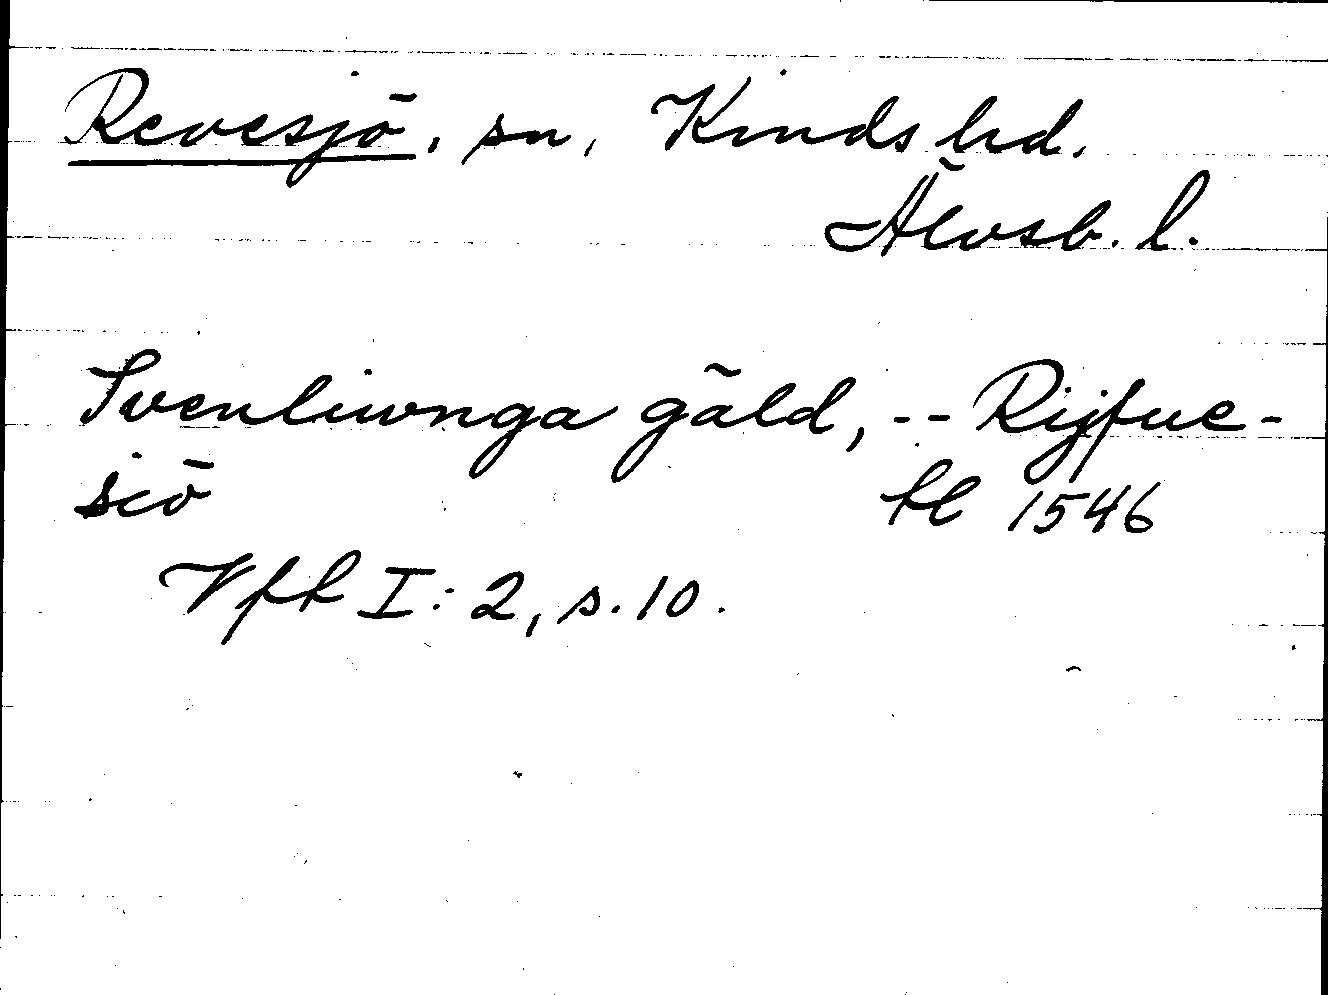 Revesjö, sn, Kinds hd.
Älvsb. l.
Svenliwnga gäld, -- Rijfue-
siö
fl 1546
Vfk I: 2, s. 10.